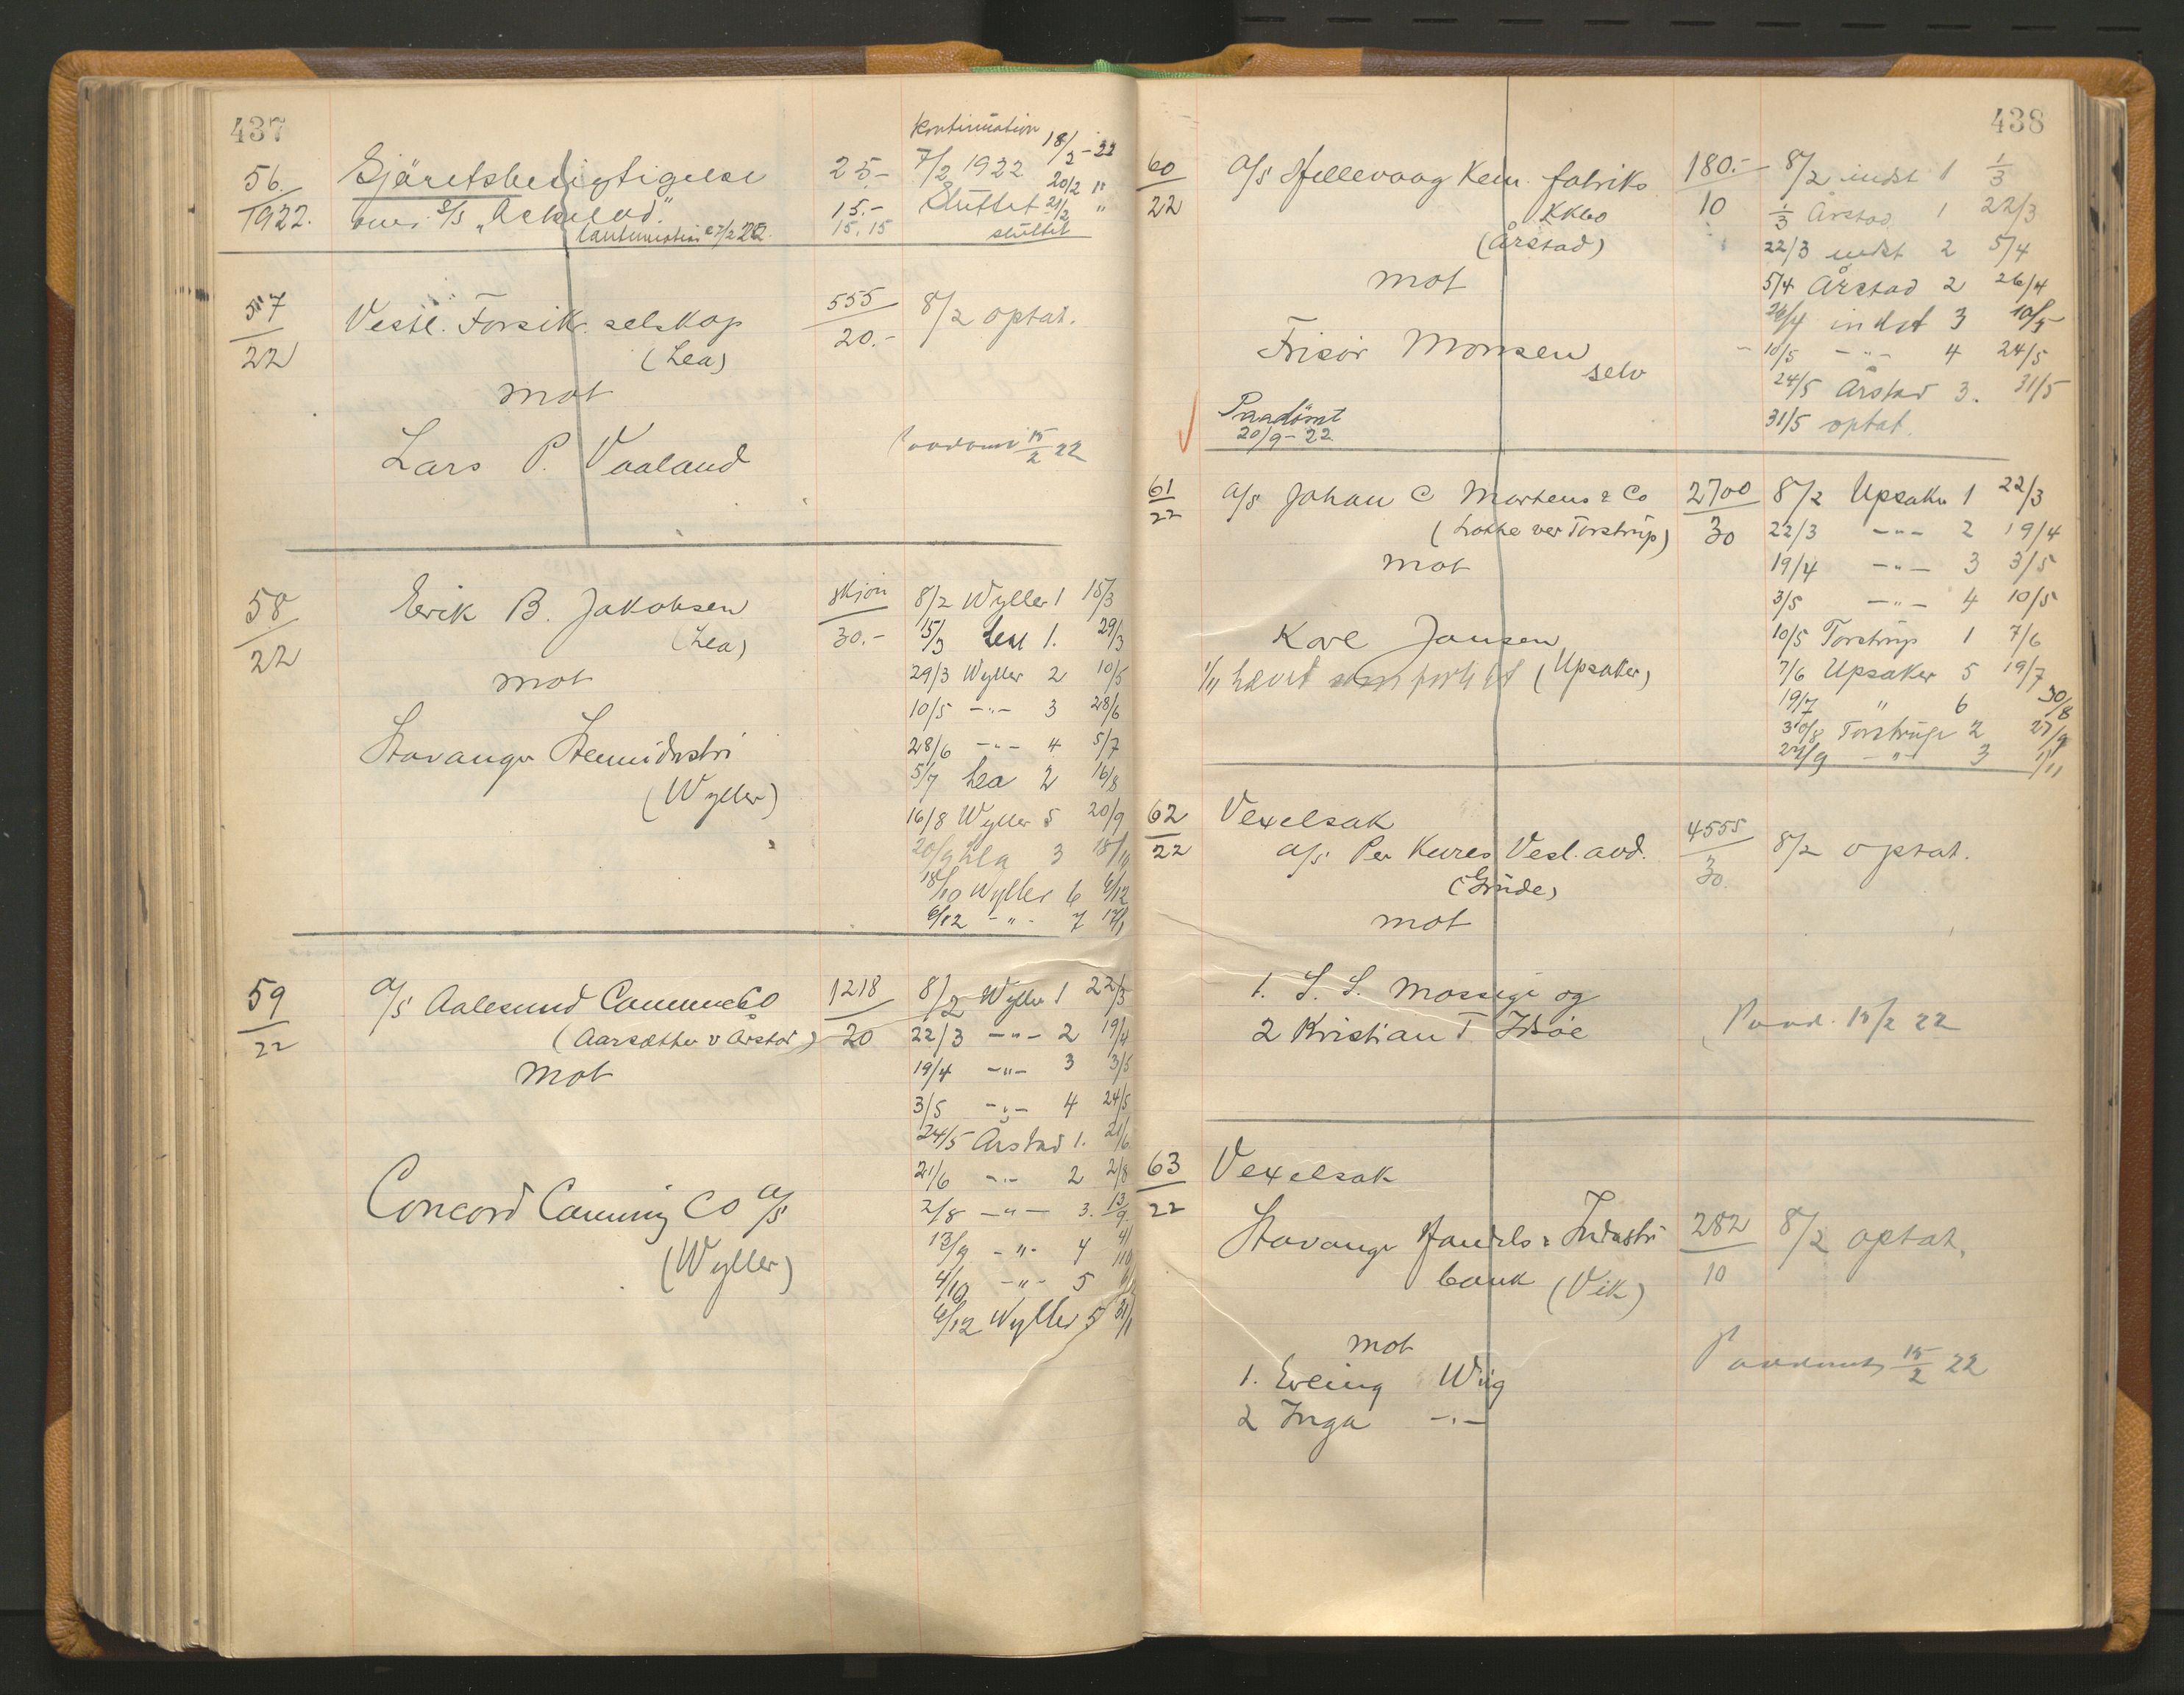 437
Kontinuation 18/2-22
56. Sjöretsbesigtigelse 25.- 7/2 1922 20/2 "
1922. over S/S 15.- Sluttet 21/2 "
27/2 22. 15.15 sluttet
57 Vestl. Forsik. selskap 555 8/2 optat.
22 (Lea) 20.-
mot
Lars P. Vaaland Paadømt 15/2 22
58 Erik B. Jakobsen skjön 8/2 Wyller 1 15/3
22 (Lea) 30.- 15/3 Lea 1. 29/3
mot 29/3 Wyller 2 10/5
10/5 -"- 3 28/6
Stavanger Stenindustri 28/6 -"- 4 5/7
(Wyller) 5/7 Lea 2 16/8
16/8 Wyller 5 20/9
20/9 Lea 3 18/10
18/10 Wyller 6 6/12
6/12 -"- 7 17/1
59 a/s Aalesund Canning Co 1218 8/2 Wyller 1 22/3
22 (Aarsæther v Årstad) 20 22/3 -"- 2 19/4
mot 19/4 -"- 3 3/5
3/5 -"- 4 24/5
24/5 Årstad 1. 21/6
21/6 -"- 2 2/8
Concord Canning Co a/s 2/8 -"- 3. 13/9
(Wyller) 13/9 -"- 4 4/10
4/10 -"- 5
6/12 Wyller 5 31/1
438
60 a/s Hellevaag Kem. fabriks 180.- 8/2 indst 1 1/3
22 10 1/3 Årstad 1 22/3
(Årstad) 22/3 indst 2 5/4
mot 5/4 Årstad 2 26/4
26/4 indst 3 10/5
Frisör Monsen 10/5 -"- 4 24/5
selv 24/5 Årstad 3. 31/5
Paadömt 31/5 optat.
20/9-22
61 a/s Johan C Martens & Co 2700 8/2 Upsaker 1 22/3
22 (Lothe ver Torstrup) 30 22/3 -"- 2 19/4
mot 19/4 -"- 3 3/5
3/5 -"- 4 10/5
Karl Jansen 10/5 Torstrup 1 7/6
1/11 hævet som forlikt (Upsaker) 7/6 Upsaker 5 19/7
19/7 " 6 30/8
30/8 Torstrup 2 27/9
27/9 -"- 3 1/11
62 Vexelsak
22 a/s Per Kures Vestl. avd. 4555 8/2 optat.
(Grude) 30.
mot
1. S. S. Mossige og
2 Kristian T. Idsöe Paad. 15/2 22
63 Vexelsak
22 Stavanger Handels & Industri 282 8/2 optat.
bank (Vik) 10
mot
1. Erling Wiig Paadømt 15/2 22
2 Inga -"-